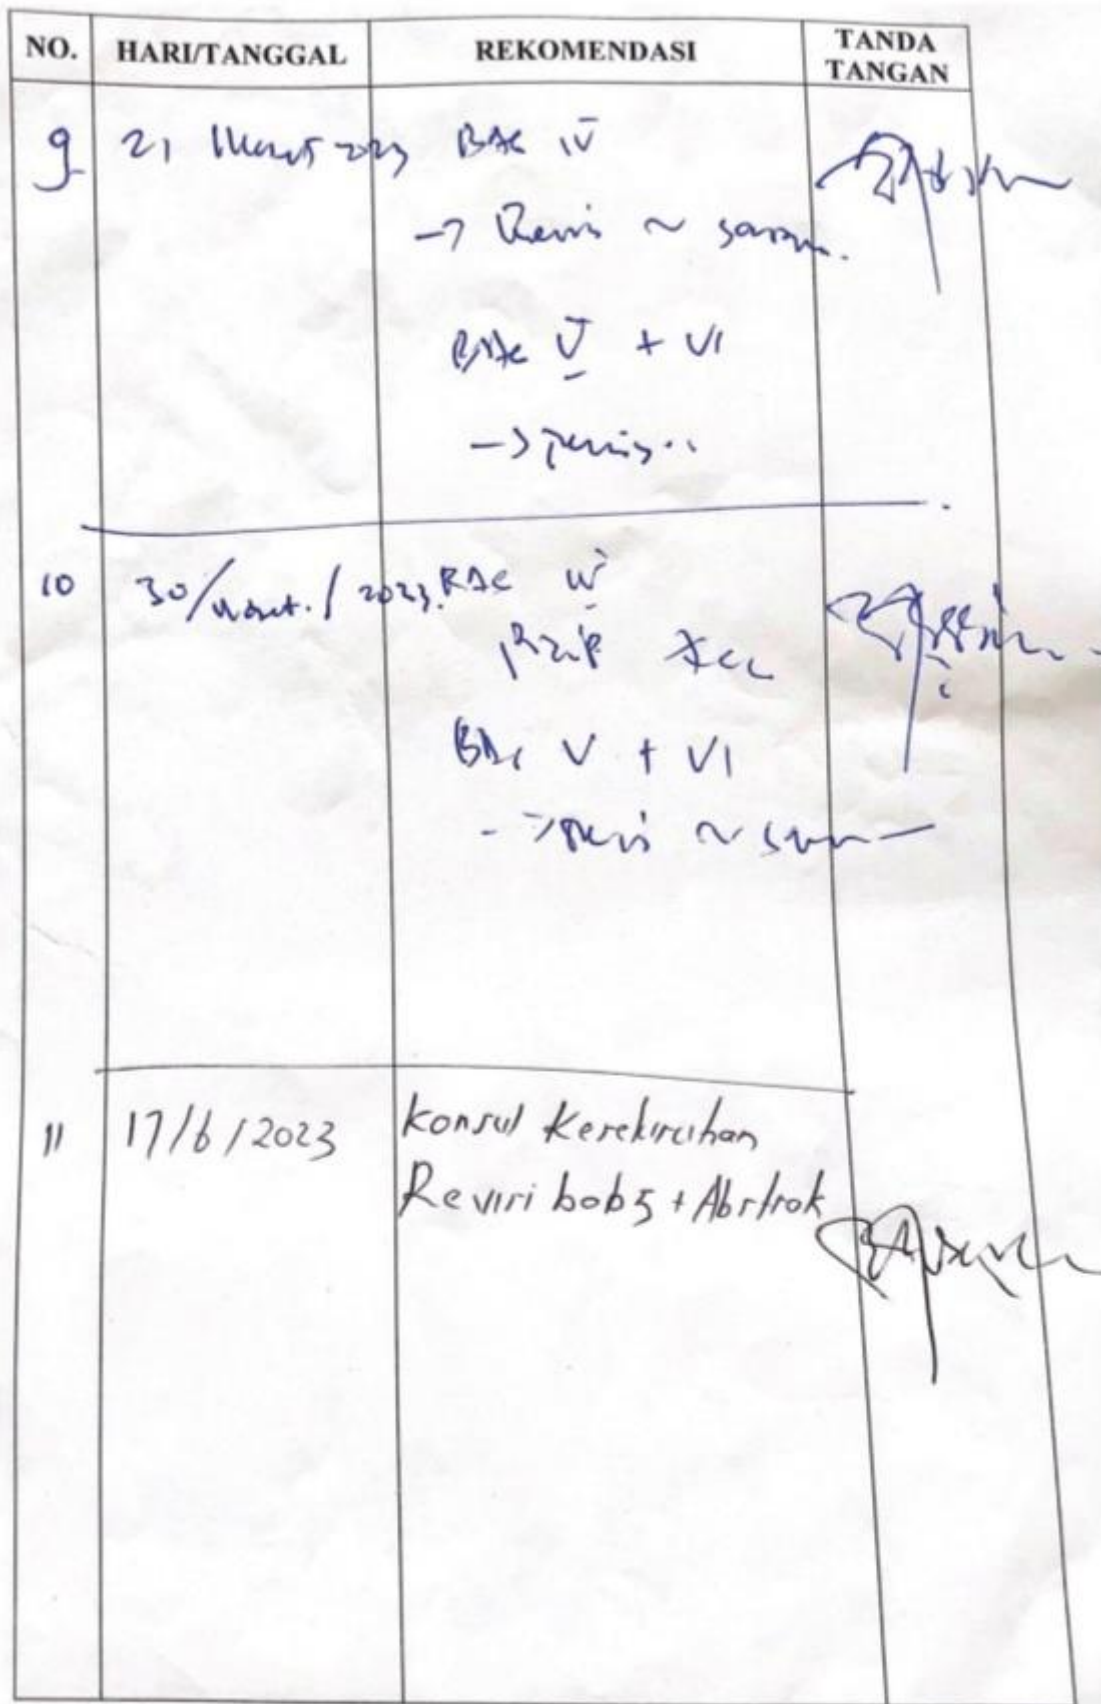 NO. HARI/TANGGAL REKOMENDASI TANDA TANGAN
9 21 Maret 2023 BAB IV
→ Revisi ~ saran.
BAB V + VI
→
10 30/Maret./2023. BAB IV
Acc
BAB V + VI
→ Revisi ~ saran
11 17/6/2023 Konsul Keseluruhan
Revisi bab 5 + Abstrak